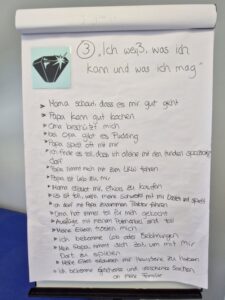 ③ „Ich weiß, was ich
kann und was ich mag"
➤ Mama schaut, dass es mir gut geht
➤ Papa kann gut kochen
➤ Oma beschützt mich
➤ bei Oma gibt es Pudding
➤ Papa spielt oft mit mir
➤ Ich finde es toll, dass ich alleine mit den Hunden spazieren
darf
➤ Papa nimmt mich mit dem LKW fahren
➤ Papa ist lieb zu mir
➤ Mama erlaubt mir, etwas zu kaufen
➤ es ist toll, wenn meine Schwester mit mir spielt
➤ ich darf mit Papa zusammen Traktor fahren
➤ Oma hat immer Zeit für mich
➤ Ausflüge mit meinen sind toll
➤ Meine Eltern trösten mich
➤ Ich bekomme Lob oder Belohnungen
➤ Mein Papa nimmt sich Zeit, um mit mir
Dart zu spielen
➤ Meine Eltern erlauben mir Haustiere zu haben
➤ Ich bekomme Geschenke und Sachen,
an meine Familie